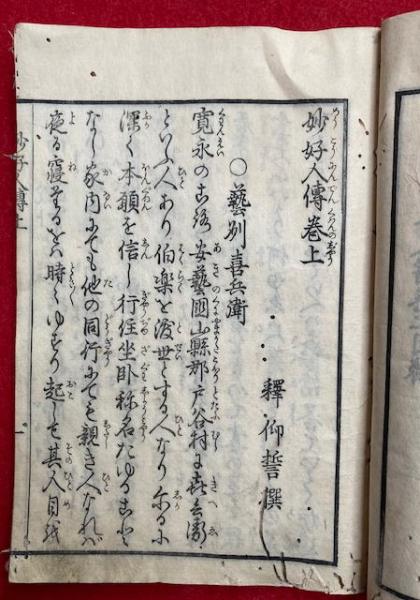 妙好人傳巻上
釋仰誓撰
○藝州喜兵衛
寛永のころ安藝國山縣郡戸谷村に喜兵衛
といふ人あり伯楽を渡世とする人なり
深く本願を信し行住坐臥称名たゆること
なし家内にても他の同行にても親き人なれバ
夜る寝たるをハ時〻ゆすり起して其人目を
妙好人傳上
一